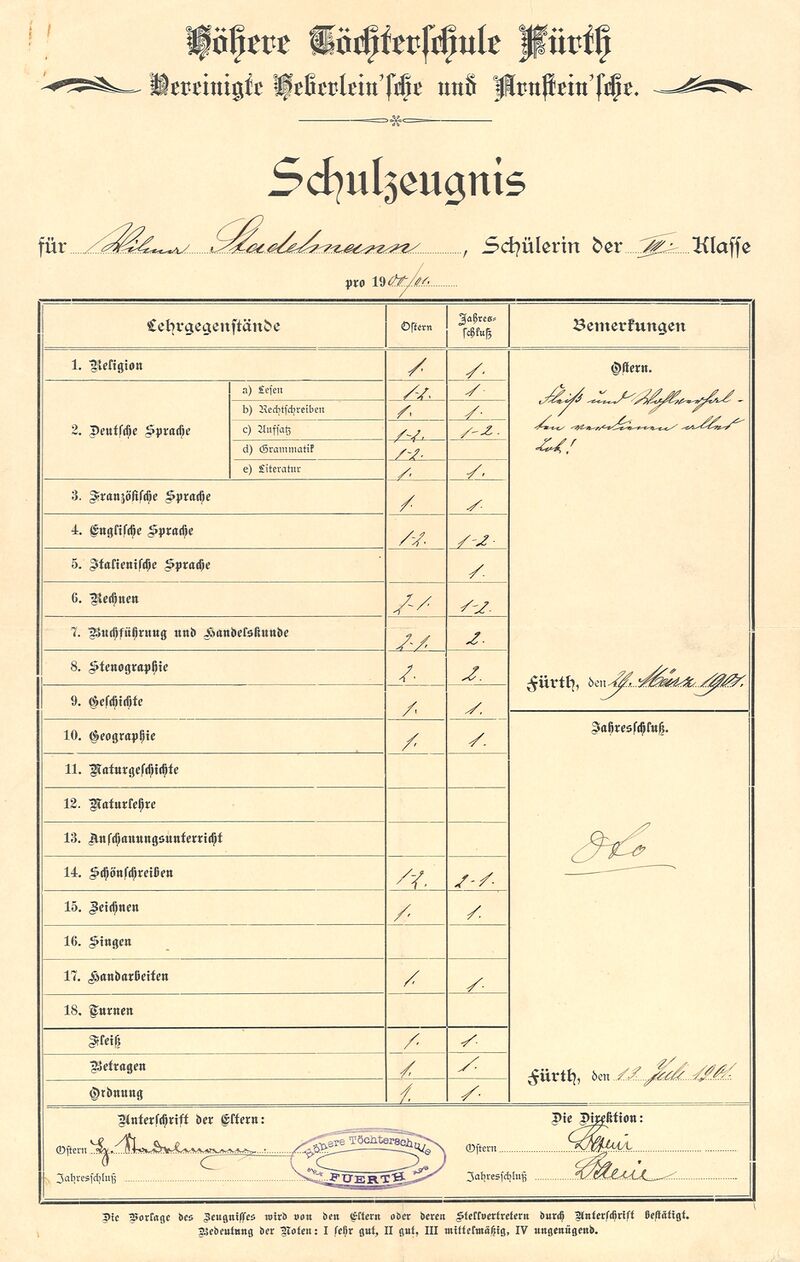 Höhere Töchterschule Fürth
Vereinigte Heberlein'sche und Arnstein'sche.
Schulzeugnis
für Wilma Stadelmann, Schülerin der III. Klasse
pro 1900/01.
Lehrgegenstände Ostern Jahres-schluß Bemerkungen
1. Religion 1. 1.
2. Deutsche Sprache
a) Lesen 1-2. 1.
b) Rechtschreiben 1. 1.
c) Aufsatz 1-2. 1-2.
d) Grammatik 1-2.
e) Literatur 1. 1.
3. Französische Sprache 1. 1.
4. Englische Sprache 1-2. 1-2.
5. Italienische Sprache 1.
6. Rechnen 2-1. 1-2.
7. Buchführung und Handelskunde 2-1. 2.
8. Stenographie 2. 2.
9. Geschichte 1. 1.
10. Geographie 1. 1.
11. Naturgeschichte
12. Naturlehre
13. Anschauungsunterricht
14. Schönschreiben 1-2. 2-1.
15. Zeichnen 1. 1.
16. Singen
17. Handarbeiten 1. 1.
18. Turnen
Fleiß 1. 1.
Betragen 1. 1.
Ordnung 1. 1.
Ostern.
Fleiß und Wohlverhal-
ten verdienen alles
Lob!
Fürth, den 29. März 1901.
Jahresschluß.
dto
Fürth, den 13. Juli 1901.
Unterschrift der Eltern:
Ostern H. Stadelmann.
Jahresschluß
Höhere Töchterschule
FUERTH
Die Direktion:
Ostern
Jahresschluß
Die Vorlage des Zeugnisses wird von den Eltern oder deren Stellvertretern durch Unterschrift bestätigt.
Bedeutung der Noten: I sehr gut, II gut, III mittelmäßig, IV ungenügend.